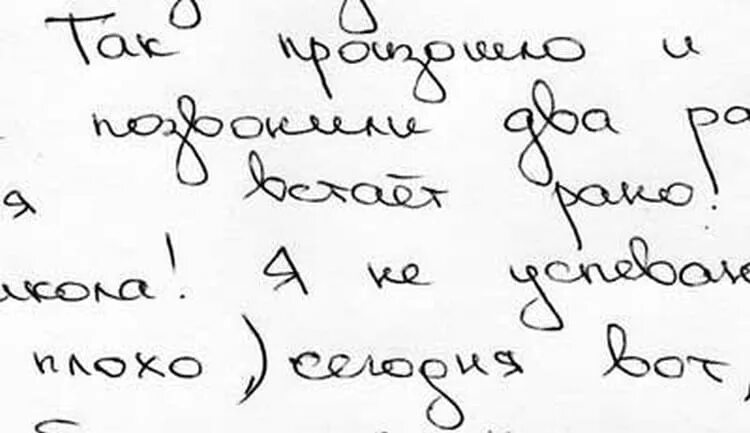 Так произошло и
позвонили два ра
я встаёт рано!
школа! Я не успеваю
плохо, сегодня вот,